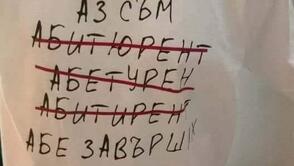 АЗ СЪМ
АБИТЮРЕНТ
АБЕТУРЕН
АБИТИРЕН
АБЕ ЗАВЪРШИХ